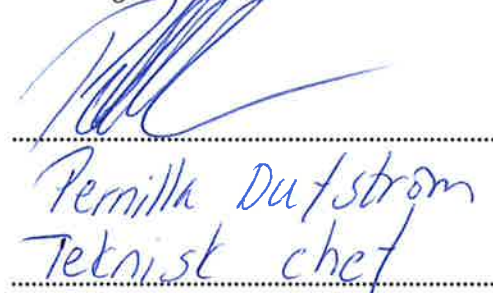 Pernilla Dufström
Teknisk chef